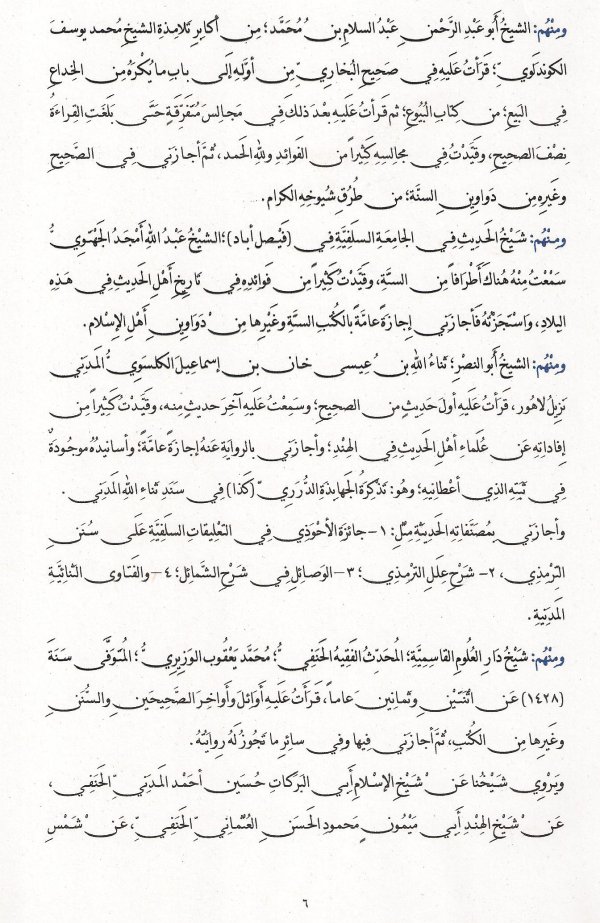 ومِنْهُم: الشيخُ أَبُو عَبْدِ الرَّحْمٰنِ عَبْدُ السلامِ بنُ مُحَمَّد؛ مِن أكابِرِ تلامِذةِ الشيخِ مُحمد يوسفَ
الكوندلَويّ؛ قرأتُ عَلَيهِ في صَحيحِ البُخاريِّ مِن أوَّلِهِ إلَى بابِ ما يُكْرَهُ مِن الخِداعِ
فِي البَيعِ؛ من كِتابِ البُيُوعِ؛ ثم قَرأتُ عَليهِ بعْدَ ذلكَ في مَجالسَ مُتفَرِّقةٍ حتَّى بلَغَت القِراءَةُ
نِصْفَ الصحيحِ، وقَيَّدْتُ في مجالسِهِ كَثيراً من الفَوائدِ وللهِ الحَمد، ثُمَّ أجازَني في الصَّحيحِ
وغَيرِه مِن دَواوِينِ السنَّة؛ من طُرُقِ شُيوخِهِ الكرام.
ومِنْهُم: شَيْخُ الحَديثِ في الجامعَةِ السلَفِيَّةِ في (فَيْصل أباد)؛ الشيخُ عَبْدُ اللهِ أمْجَدُ الجَهْتَوِيُّ
سَمْعْتُ مِنْهُ هُناكَ أَطْرَافاً مِن السنَّةِ، وقَيَّدْتُ كَثِيراً مِن فَوائدِهِ في تَارِيخِ أَهْلِ الحَدِيثِ في هَذِهِ
البِلادِ، واسْتَجَزْتُهُ فَأجازَني إجازَةً عامَّةً بالكُتُبِ الستَّةِ وغَيْرِها مِنْ دَوَاوِينِ أهلِ الإسْلام.
ومِنْهُم: الشيخُ أبُو النصْرِ؛ ثناءُ اللهِ بنُ عِيسى خان بن إسماعيلَ الكلسَوِيُّ المَدَني
نزيلُ لاهُور، قرَأتُ عَلَيهِ أولَ حَديثٍ من الصحيحِ؛ وسَمعْتُ عَلَيهِ آخِرَ حديثٍ منه، وقَيَّدْتُ كَثيراً من
إفاداتِهِ عَن عُلَماءِ أهْلِ الحَديثِ في الهِنْدِ؛ وأجازَني بالروايَةِ عَنهُ إجازَةً عامَّةً؛ وأسانيدُهُ موجُودَةٌ
في ثبَتِهِ الذي أعْطانِيهِ؛ وهُو: تَذْكِرَةُ الجَهابِذَةِ الدُّرَريّ (كَذا) في سَنَدِ ثناء الله المَدني.
وأجازَني بمُصَنَّفاتِهِ الحَديثِيَّةِ مِثل: ١- جائزَة الأحْوَذي في التعْليقاتِ السلَفيَّةِ عَلَى سُنَنِ
التِّرْمذي، ٢- شَرْح عِلَلِ التِّرْمِذي؛ ٣- الوَصائل في شَرْحِ الشَّمائل؛ ٤- والفَتاوى الثنائيَّة
المَدَنِيَة.
ومِنْهُم: شَيْخُ دَارِ العُلُومِ القاسِمِيَّةِ؛ المُحَدِّثُ الفَقِيهُ الحَنَفيُّ؛ مُحَمَّد يَعْقُوب الوَزِيرِيُّ؛ المُتوَفَّى سَنَةَ
(١٤٢٨) عَن اثْنَتَيْنِ وثَمانِين عَاماً، قَرَأتُ عَلَيهِ أوائلَ وأواخِرَ الصَّحِيحَينِ والسُّنَنِ
وغَيرِها مِن الكُتُبِ، ثُمَّ أجازَني فِيها وفِي سائِرِ ما تَجُوزُ لَهُ رِوايَتُهُ.
ويَرْوي شَيْخُنا عَنْ شَيْخِ الإسْلامِ أبي البَرَكاتِ حُسَين أحْمَد المَدنيِّ الحَنَفي،
عَنْ شَيْخِ الهِنْدِ أَبِي مَيْمُونٍ مَحمودِ الحَسَنِ العُثمانيِّ الحَنفِيِّ، عَنْ شَمْسِ
٦